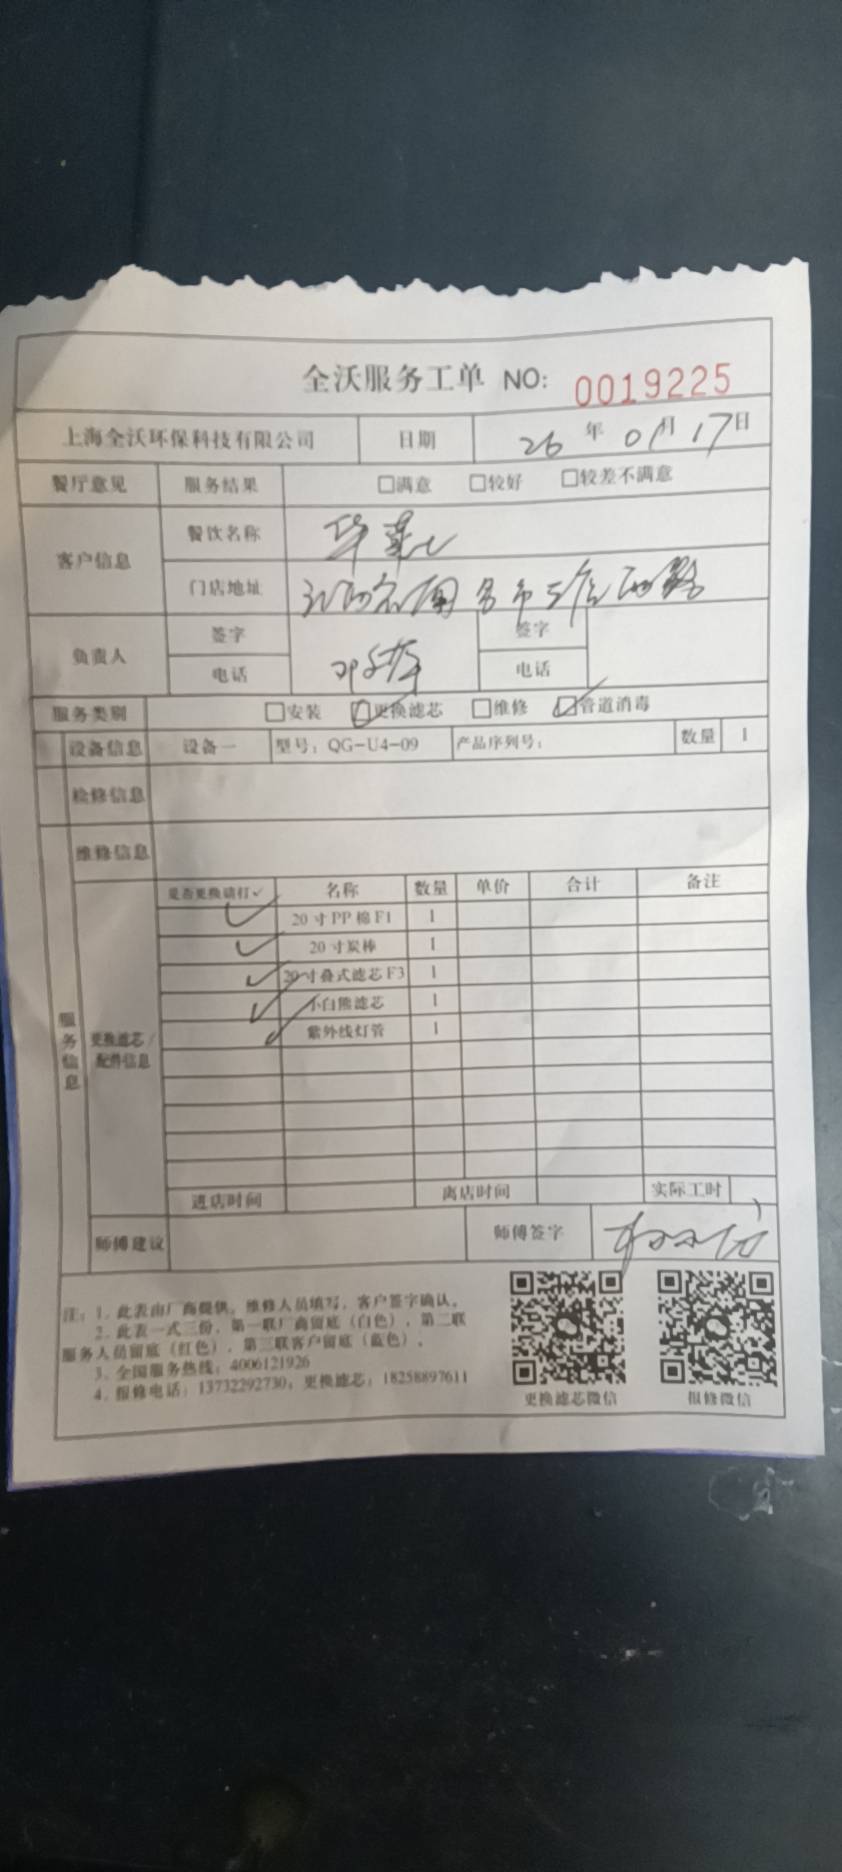 全沃服务工单 NO: 0019225
上海全沃环保科技有限公司 日期 26年01月17日
餐厅意见 服务结果 □满意 □较好 □较差不满意
客户信息 餐饮名称 华莱士
门店地址
负责人 签字 签字
电话 电话
服务类别 □安装 □更换滤芯 □维修 □管道消毒
设备信息 设备一 型号：QG-U4-09 产品序列号： 数量 1
检修信息
维修信息
服务信息
更换滤芯/配件信息
是否更换请打✓ 名称 数量 单价 合计 备注
✓ 20寸PP棉F1 1
✓ 20寸炭棒 1
✓ 20寸叠式滤芯F3 1
✓ 小白熊滤芯 1
✓ 紫外线灯管 1
进店时间 离店时间 实际工时
师傅建议 师傅签字
注：1、此表由厂商提供，维修人员填写，客户签字确认。
2、此表一式三份，第一联厂商留底（白色），第二联
服务人员留底（红色），第三联客户留底（蓝色）。
3、全国服务热线：4006121926
4、报修电话：13732292730，更换滤芯：18258897611
更换滤芯微信 报修微信